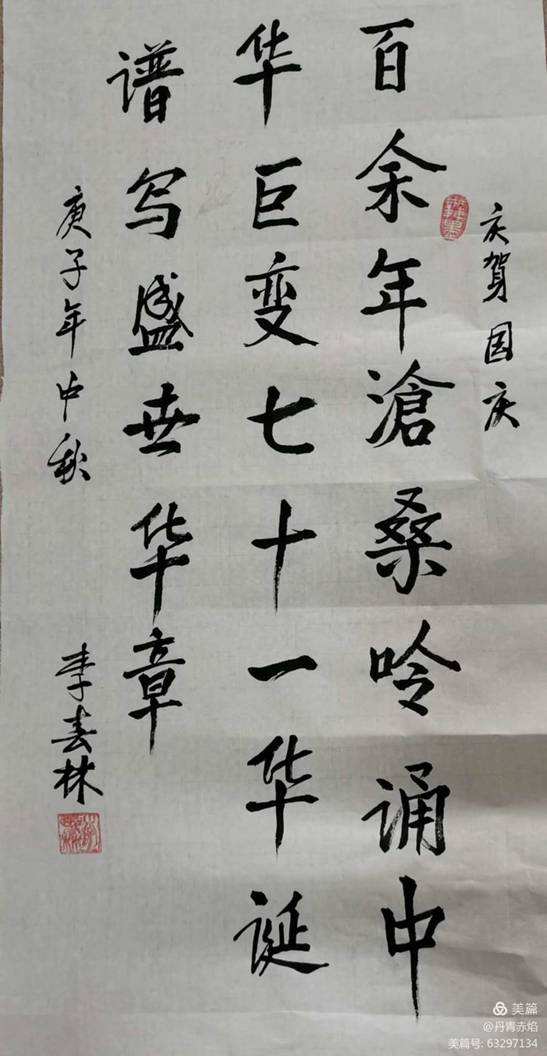 庆贺国庆
百余年滄桑呤诵中
华巨变七十一华诞
谱写盛世华章
庚子年中秋 李春林
美篇
@丹青赤焰
美篇号: 63297134